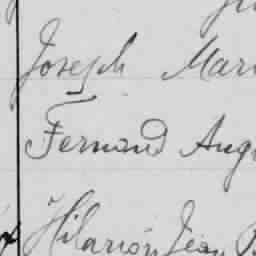 Joseph Mar
Fernand Aug
Hilarion Jean